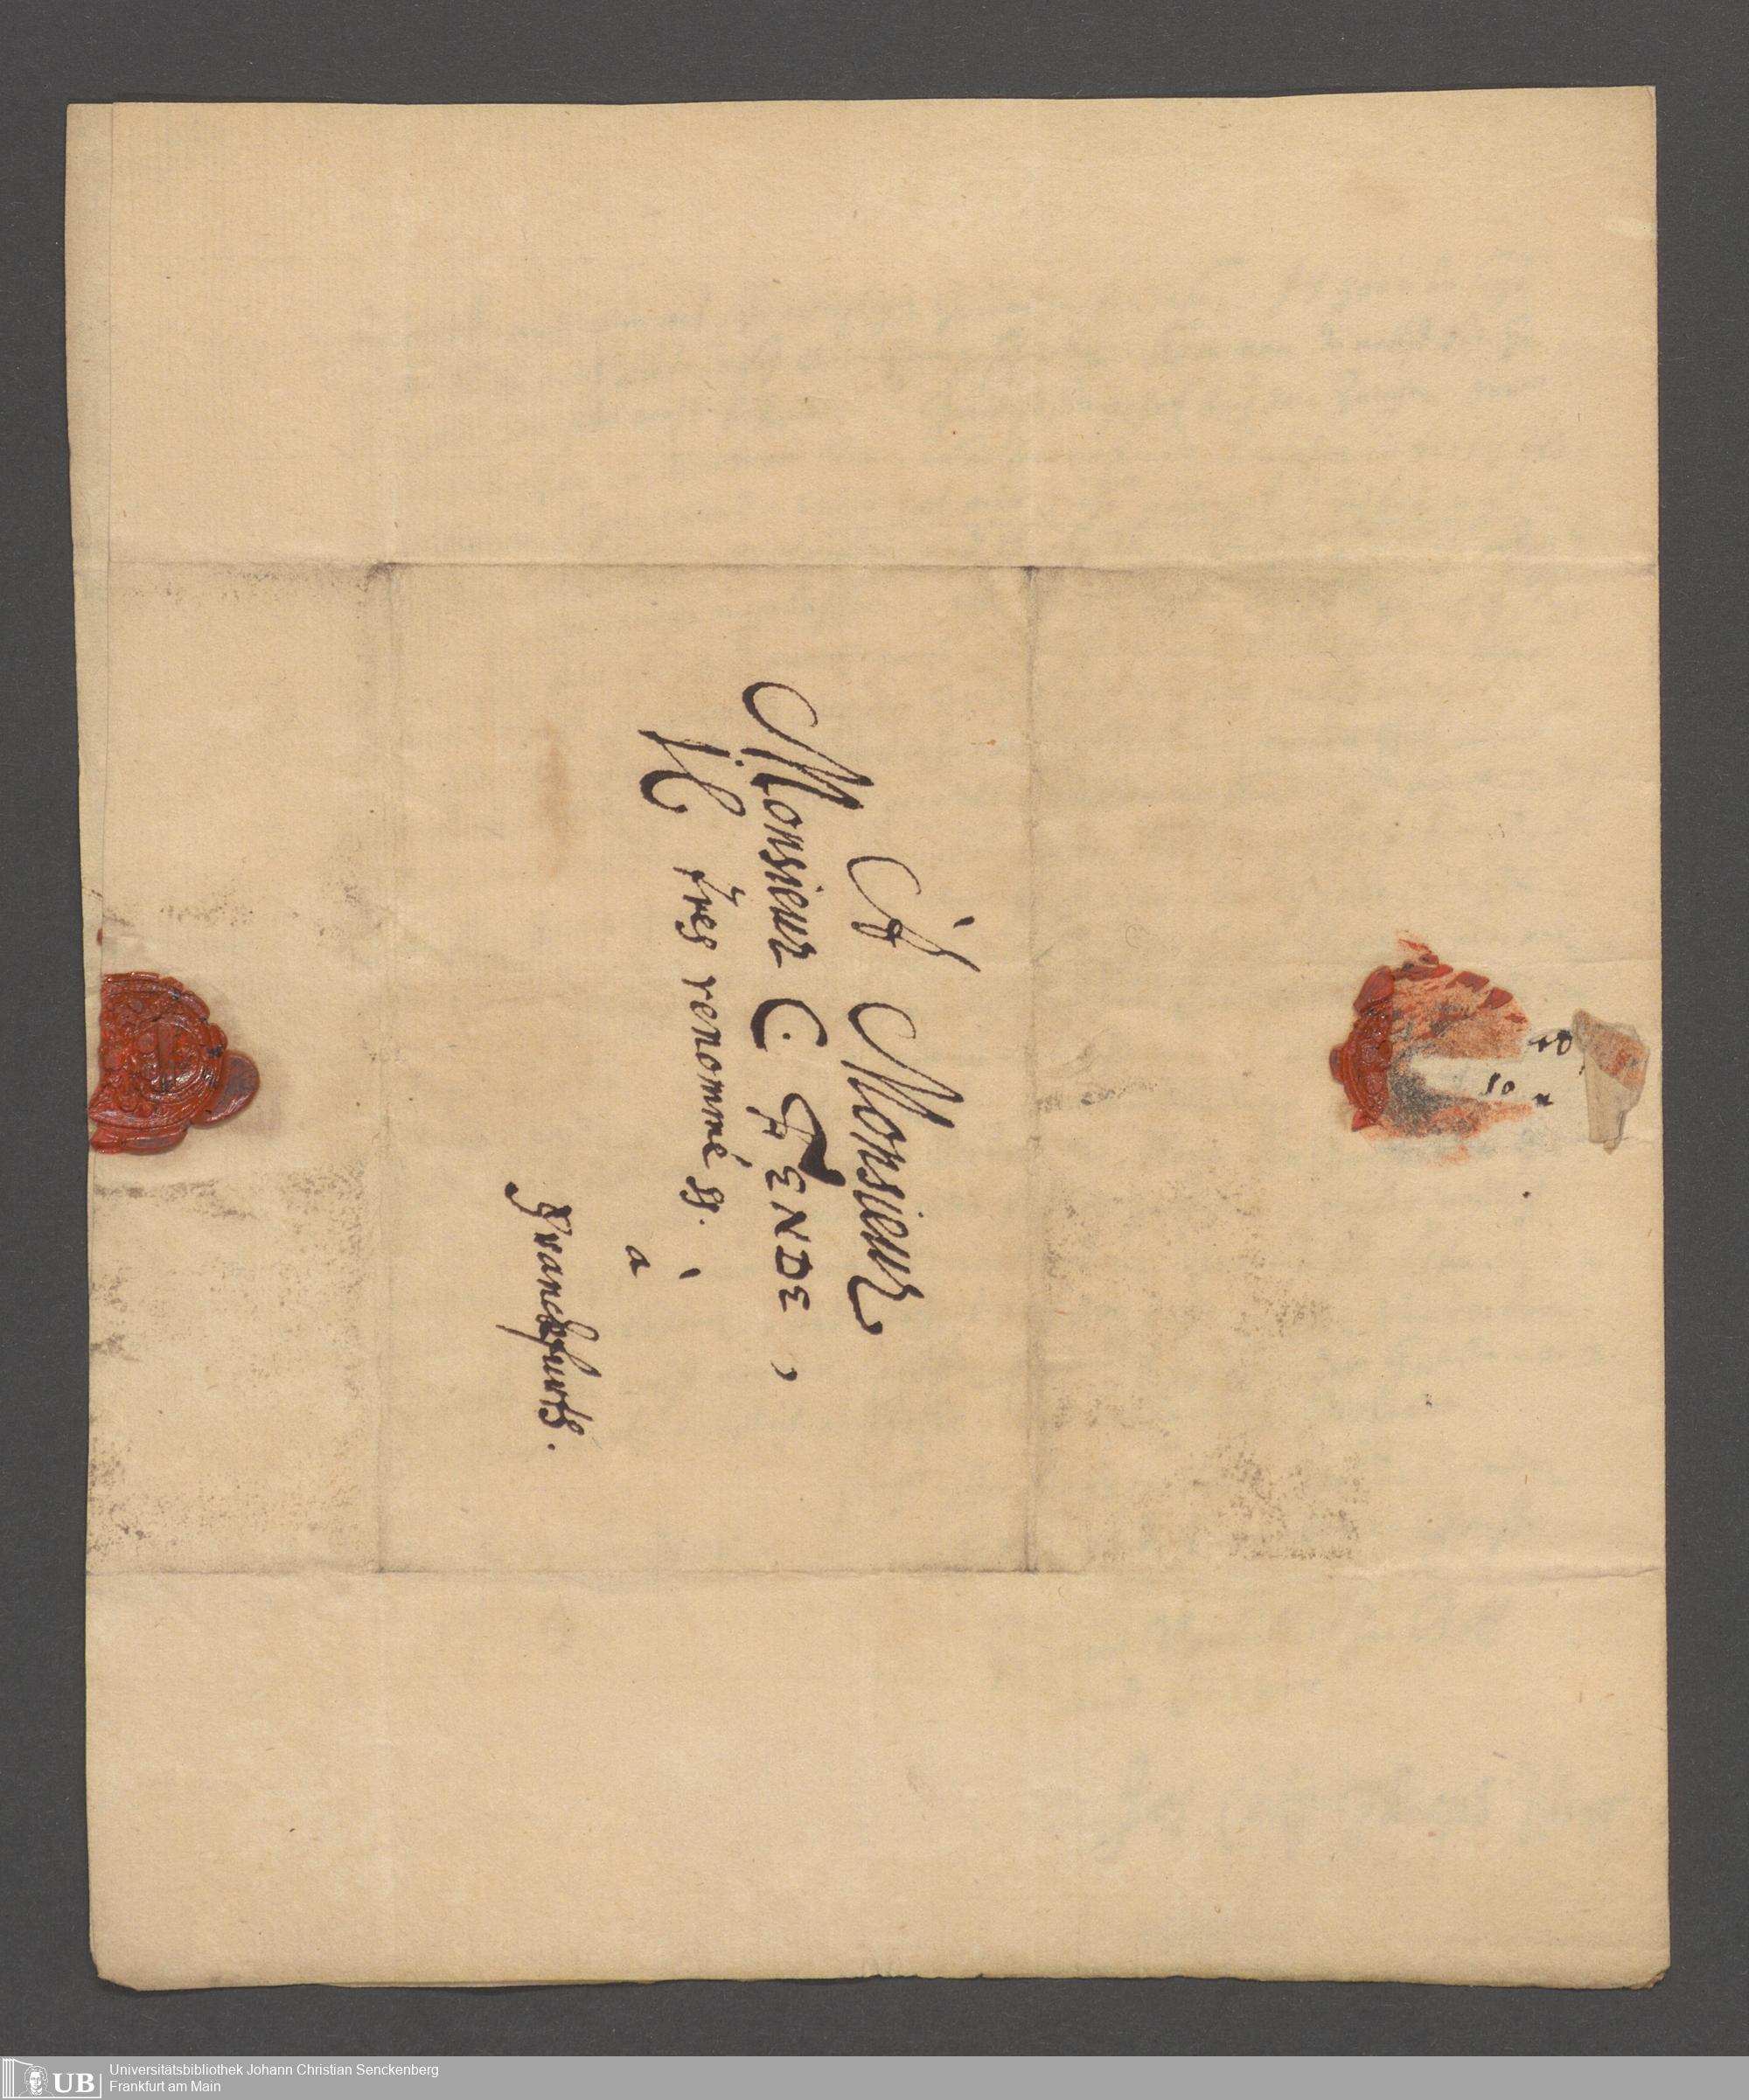 À Monsieur
Monsieur C. FENDE,
JC tres renommé
à
Franckfurth.
UB
Universitätsbibliothek Johann Christian Senckenberg
Frankfurt am Main